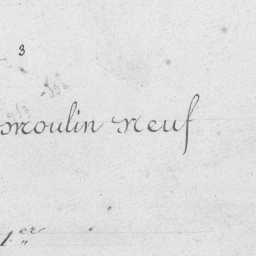 3
moulin neuf
1er